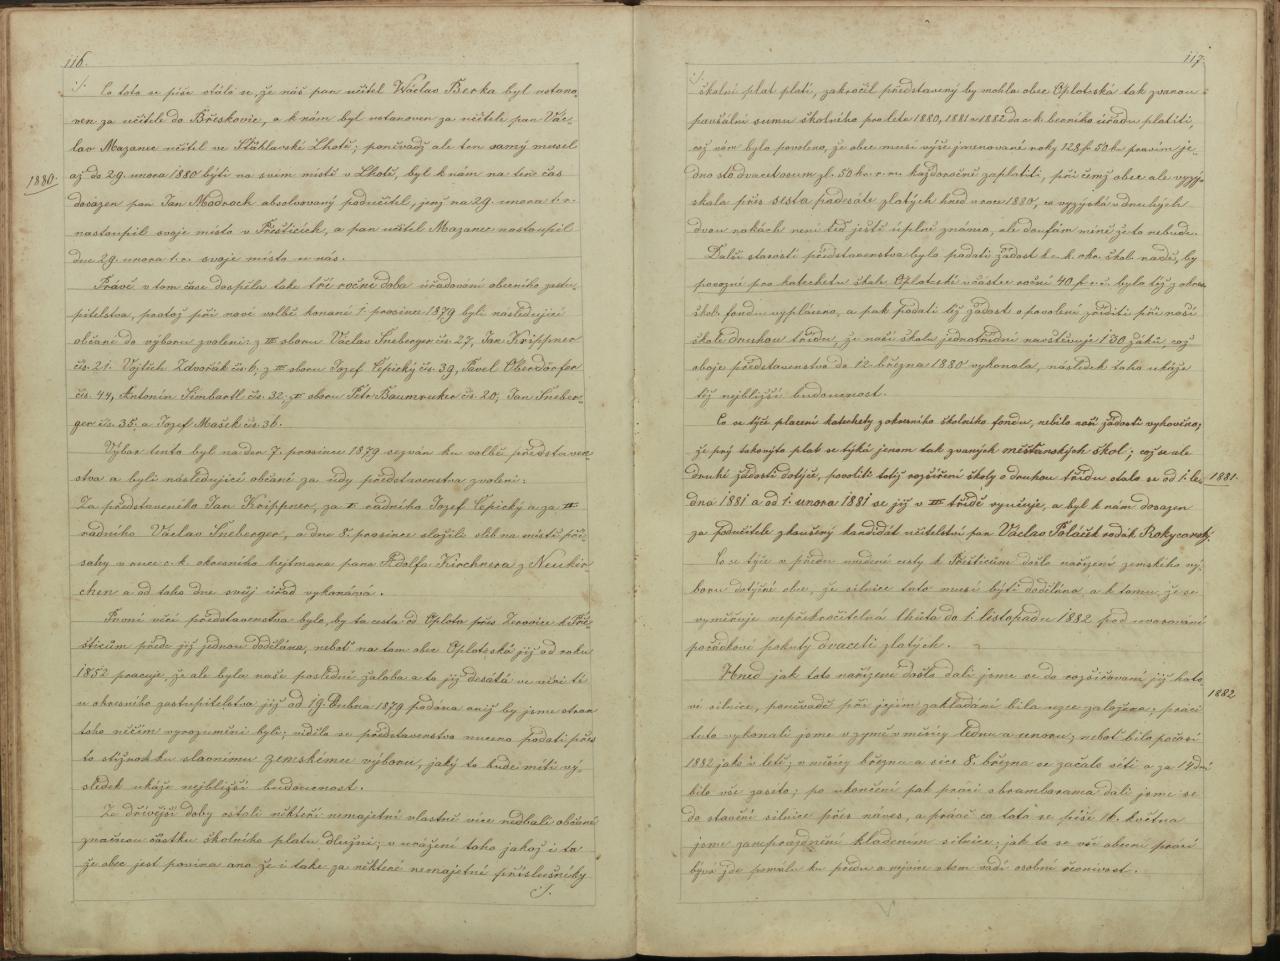 116.
./. Co toto se píše stálo se, že náš pan učitel Václav Berka byl ustano-
ven za učitele do Břeskovic, a k nám byl ustanoven za učitele pan Vác-
lav Mazanec učitel ve Šťáhlavské Lhotě; poněvadž ale ten samý musel
1880.
až do 29. unora 1880 býti na svém místě v Lhotě, byl k nám na ten čas
dosazen pan Jan Modroch absolvovaný podučitel, jenž na 29. unora t. r.
nastoupil svoje místo v Přešticích, a pan učitel Mazanec nastoupil
dne 29. unora t. r. svoje místo u nás.
Právě v tom čase dospěla take tří roční doba úřadování obecního zastu-
pitelstva, protož při nové volbě konané 1. prosince 1879 byli následující
občané do výboru zvoleni: z III sboru Václav Šneberger čís. 27, Jan Krippner
čís. 21. Vojtěch Zdvořák čís. 6, z II sboru Jozef Cepický čís. 39, Pavel Oberdörfer
čís. 44, Antonín Šimbartl čís. 32, I sboru Petr Baumruker čís. 20, Jan Šneber-
ger čís. 35. a Jozef Mašek čís. 36.
Výbor tento byl na den 7. prosince 1879 sezván ku volbě představen-
stva a byli následující občané za údy představenstva zvoleni:
Za představeného Jan Krippner, za I radního Jozef Cepický a za II
radního Václav Šneberger, a dne 8. prosince složili slib na místě pří-
sahy v ruce c. k. okresního hejtmana pana Adolfa Kirchnera z Neukir-
chen a od toho dne svůj úřad vykonává.
První věcí představenstva bylo, by ta cesta od Oplota přes Žerovice k Pře-
šticům přede již jednou dodělána, neboť na tom obec Oplotská již od roku
1852 pracuje, že ale byla naše poslední žaloba a to již desátá ve věci té
u okresního zastupitelstva již od 19. Dubna 1879 podána aniž by jsme stran
toho něčím vyrozuměni byli; viděla se představenstvo nuceno podati přes
to stížnost ku slavnému zemskému výboru, jaký to bude míti vý-
sledek ukáže nejbližší budoucnost.
Za dřívější doby ostali někteří nemajetní vlastně více nedbalí občané
značnou částku školního platu dlužni; v uvážení toho jakož i to
že obec jest povina ano že i take za některé nemajetné příslušníky
./.
117.
./. školní plat platí, zakročil představený by mohla obec Oplotská tak zvanou
pavšální sumu školního pro léta 1880, 1881 a 1882 do c. k. berního úřadu platiti,
což nám bylo povoleno, že obec musí výše jmenované roky 128 f 50 kr pravím je-
dno sto dvacet osum zl. 50 kr. r. m. každoročně zaplatiti, při čemž obec ale vyzý-
skala přes šesta padesáte zlatých hned v roce 1880, co vyzýská v druhých
dvou rokách není teď ještě úplně známo, ale doufám méně že to nebude.
Další starostí představenstva bylo podati žádost k c. k. okr. škol. radě, by
povozné pro katechetu škole Oplotské v částce roční 40 f r. č. bylo též z okres.
škol. fondu vypláceno, a pak podati též žádost o povolení zříditi při naší
škole druhou třídu, že naší školu jednotřídní navštěvuje 130 žáků, což
oboje představenstvo do 12. března 1880 vykonala, následek toho ukáže
též nejbližší budoucnost.
Co se týče placení katechety z okresního školního fondu, nebilo naší žádosti vyhověno,
že prý takovýto plat se týká jenom tak zvaných měšťanských škol; což se ale
druhé žádosti dotýče, povoliti totiž rozšíření školy o druhou třídu stalo se od 1. le-
1881.
dna 1881 a od 1. unora 1881 se již v II třídě vyučuje, a byl k nám dosazen
za podučitele zkoušený kandidát učitelství pan Václav Poláček rodák Rokycanský.
Co se týče v předu uvedené cesty k Přešticům došlo nařízení zemského vý-
boru dotýčné obce, že silnice tato musí býti dodělána, a k tomu že se
vyměřuje nepřekročitelná lhůta do 1. listopadu 1882 pod uvarování
pořádkové pokuty dvaceti zlatých.
Hned jak toto nařízení došlo dali jsme se do rozšiřování již hoto-
1882
vé silnice, poněvadž při jejím zakládání bila uzce založena; práci
tuto vykonali jsme v zymě v měsícy lednu a unoru; neboť bilo počasí
1882 jako v letě; v měsícy března a sice 8. března se začalo síti a za 14 dní
bilo vše zaseto; po ukončení pak prácí s brambarama dali jsme se
do stavění silnice přes náves, a právě co toto se píše 16. května
jsme zaneprázdněni kladením silnice; jak to se vší obecní prácí
bývá jde pomalu ku předu a nejvíce v tom vadí osobní řevnivost.